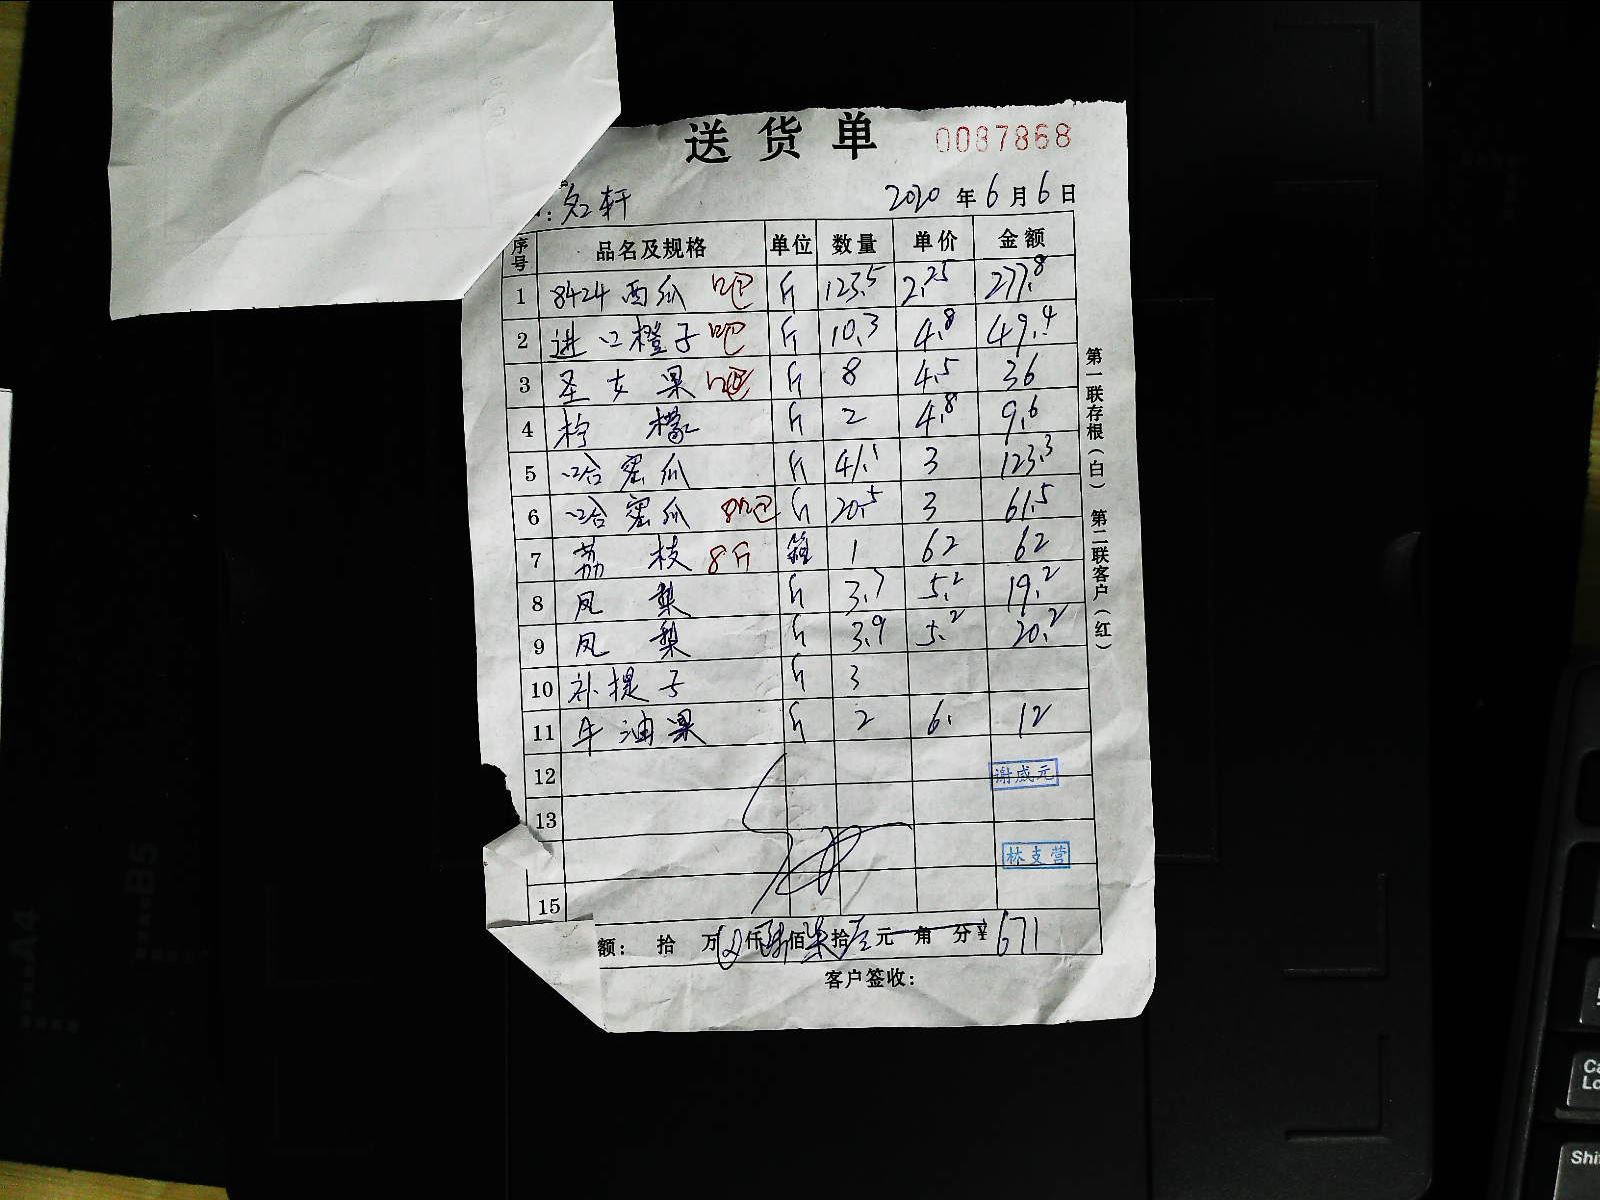 送货单 0087868
: 名轩 2020 年 6 月 6 日
序号 品名及规格 单位 数量 单价 金额
1 8424 西瓜 吧 斤 123.5 2.25 277.8
2 进口橙子 吧 斤 10.3 4.8 49.4
3 圣女果 吧 斤 8 4.5 36
4 柠檬 斤 2 4.8 9.6
5 哈密瓜 斤 41.1 3 123.3
6 哈密瓜 吧 斤 20.5 3 61.5
7 荔枝 8斤 箱 1 62 62
8 凤梨 斤 3.7 5.2 19.2
9 凤梨 斤 3.9 5.2 20.2
10 补提子 斤 3
11 牛油果 斤 2 6. 12
12
谢威元
13
林支营
15
额: 拾 万 仟 陆 佰 柒 拾 壹 元 角 分 ¥671
客户签收:
第一联存根(白) 第二联客户(红)
A4
B5
Shi